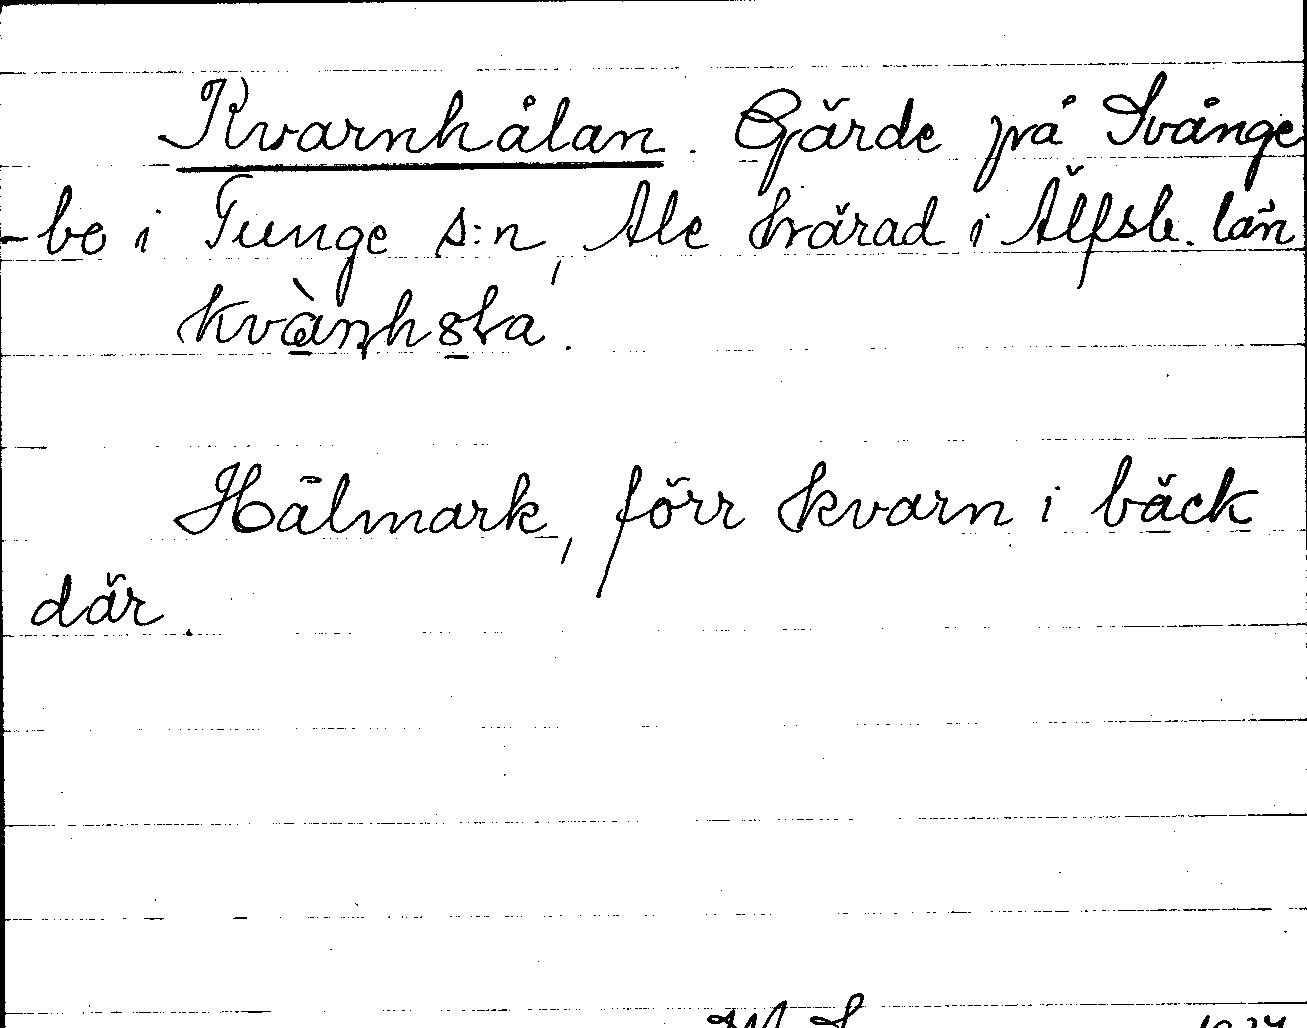 Kvarnhålan. Gärde på Svånge
-bo i Tunge s:n, Ale härad i Älfsb. län
Hålmark, förr kvarn i bäck
där.